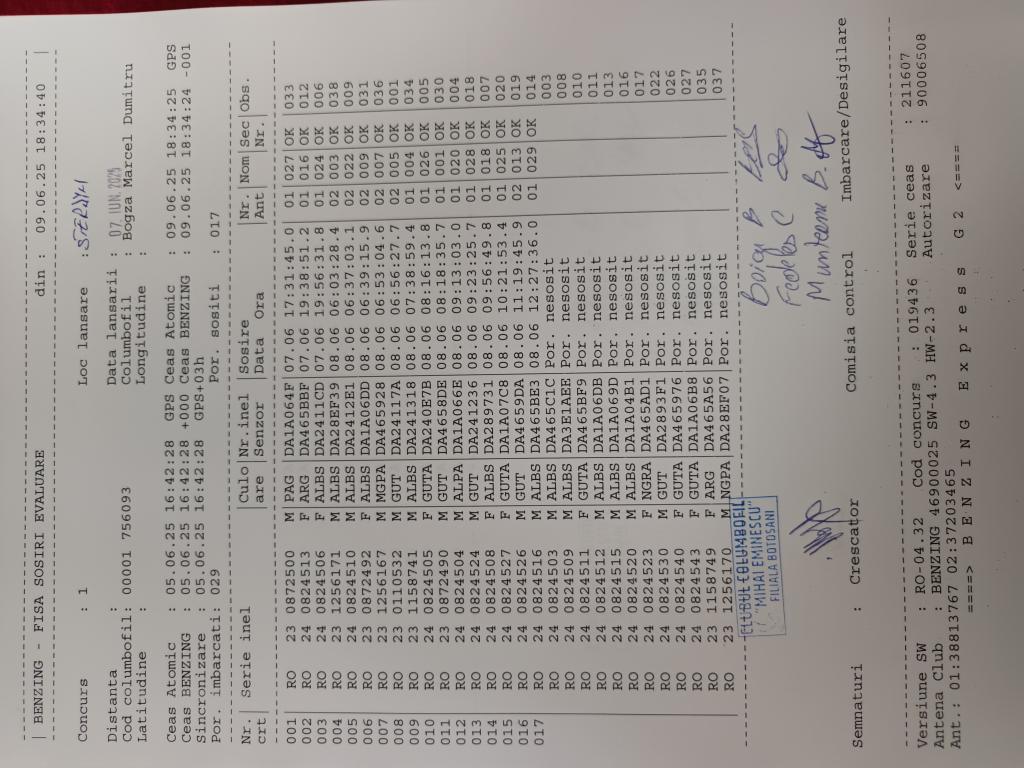 | BENZING - FISA SOSIRI EVALUARE din : 09.06.25 18:34:40 |
Concurs : 1 Loc lansare : STERYH
Distanta : Data lansarii : 07. IUN. 2025
Cod columbofil: 00001 756093 Columbofil : Bogza Marcel Dumitru
Latitudine : Longitudine :
Ceas Atomic : 05.06.25 16:42:28 GPS Ceas Atomic : 09.06.25 18:34:25 GPS
Ceas BENZING : 05.06.25 16:42:28 +000 Ceas BENZING : 09.06.25 18:34:24 -001
Sincronizare : 05.06.25 16:42:28 GPS+03h
Por. imbarcati: 029 Por. sositi : 017
Nr.| Serie inel |Culo|Nr.inel |Sosire |Nr. |Nom|Sec|Obs.
crt| |are |Senzor |Data Ora |Ant | |Nr.|
001 RO 23 0872500 M PAG DA1A064F 07.06 17:31:45.0 01 027 OK 033
002 RO 24 0824513 F ARG DA465BBF 07.06 19:38:51.2 01 016 OK 012
003 RO 24 0824506 F ALBS DA2411CD 07.06 19:56:31.8 01 024 OK 006
004 RO 23 1256171 M ALBS DA28EF39 08.06 06:03:28.4 02 003 OK 038
005 RO 24 0824510 M ALBS DA2412E1 08.06 06:37:03.1 02 022 OK 009
006 RO 23 0872492 F ALBS DA1A06DD 08.06 06:39:15.9 02 009 OK 031
007 RO 23 1256167 M MGPA DA465928 08.06 06:53:04.6 02 007 OK 036
008 RO 23 0110532 M GUT DA24117A 08.06 06:56:27.7 02 005 OK 001
009 RO 23 1158741 M ALBS DA241318 08.06 07:38:59.4 01 004 OK 034
010 RO 24 0824505 F GUTA DA240E7B 08.06 08:16:13.8 01 026 OK 005
011 RO 23 0872490 M GUT DA4658DE 08.06 08:18:35.7 01 001 OK 030
012 RO 24 0824504 M ALPA DA1A066E 08.06 09:13:03.0 01 020 OK 004
013 RO 24 0824524 M GUT DA241236 08.06 09:23:25.7 01 028 OK 018
014 RO 24 0824508 F ALBS DA289731 08.06 09:56:49.8 01 018 OK 007
015 RO 24 0824527 F GUTA DA1A07C8 08.06 10:21:53.4 01 025 OK 020
016 RO 24 0824526 M GUT DA4659DA 08.06 11:19:45.9 02 013 OK 019
017 RO 24 0824516 M ALBS DA465BE3 08.06 12:27:36.0 01 029 OK 014
RO 24 0824503 M ALBS DA465C1C Por. nesosit 003
RO 24 0824509 M ALBS DA3E1AEE Por. nesosit 008
RO 24 0824511 F GUTA DA465BF9 Por. nesosit 010
RO 24 0824512 M ALBS DA1A06DB Por. nesosit 011
RO 24 0824515 M ALBS DA1A069D Por. nesosit 013
RO 24 0824520 M ALBS DA1A04B1 Por. nesosit 016
RO 24 0824523 F NGRA DA465AD1 Por. nesosit 017
RO 24 0824530 M GUT DA4693F1 Por. nesosit 022
RO 24 0824540 F GUTA DA465976 Por. nesosit 026
RO 24 0824543 F GUTA DA1A06B8 Por. nesosit 027
RO 23 1158749 F ARG DA465A56 Por. nesosit 035
RO 23 1256170 M NGPA DA28EF07 Por. nesosit 037
CLUBUL COLUMBOFIL
"MIHAI EMINESCU"
FILIALA BOTOSANI
Fedeles C
Munteanu B.
Semnaturi : Crescator Comisia control Imbarcare/Desigilare
Versiune SW : RO-04.32 Cod concurs : 019436 Serie ceas : 211607
Antena Club : BENZING 46900025 SW-4.3 HW-2.3 Autorizare : 90006508
Ant.: 01:38813767 02:37203465
====> B E N Z I N G E x p r e s s G 2 <====